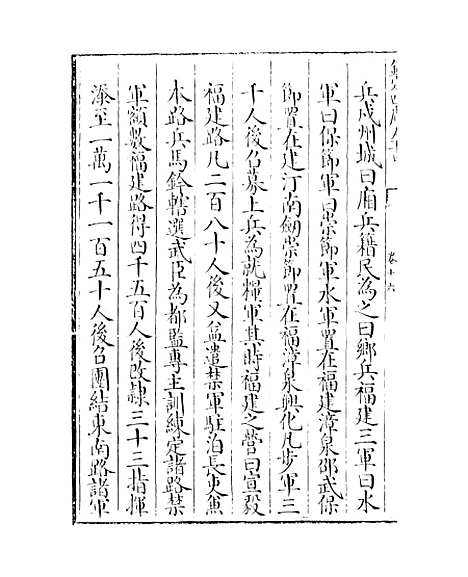 卷十六
兵戍州城曰廂兵籍民為之曰鄉兵福建三軍曰水
軍曰保節軍曰崇節軍水軍置在福建漳泉邵武保
節置在建汀南劒崇節置在福漳泉興化凡步軍三
千人後召募上兵為就糧軍其時福建之營曰宣毅
福建路凡二百八十人後又益遣禁軍駐泊長吏兼
本路兵馬鈐轄選武臣為都監專主訓練定諸路禁
軍額數福建路得四千五百人後改隸三十三指揮
添至一萬一千一百五十人後召團結東南路諸軍